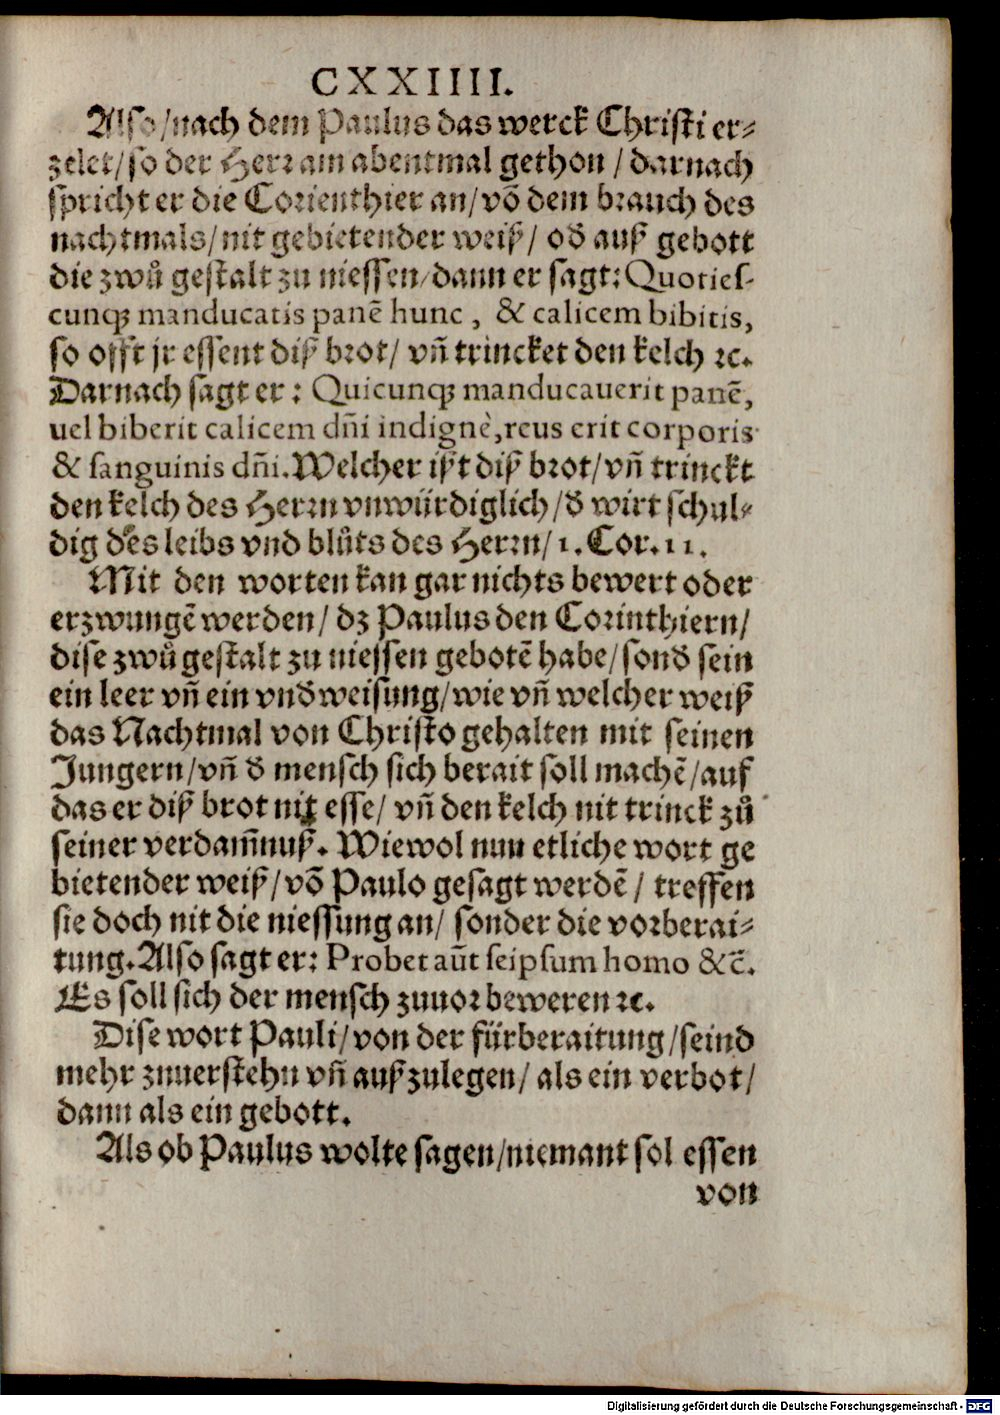 CXXIIII.
Also/nach dem Paulus das werck Christi er⸗
zelet/so der Herr am abentmal gethon / darnach
spricht er die Corienthier an/võ dem brauch des
nachtmals/nit gebietender weiß/ od auß gebott
die zwů gestalt zu niessen/dann er sagt: Quoties-
cunqꝫ manducatis panē hunc, & calicem bibitis,
so offt jr essent diß brot/ vñ trincket den kelch ꝛc.
Darnach sagt er: Quicunqꝫ manducauerit panē,
uel biberit calicem dñi indignè, reus erit corporis
& sanguinis dñi. Welcher ißt diß brot/vñ trinckt
den kelch des Herrn vnwürdiglich/d wirt schul⸗
dig des leibs vnd blůts des Herrn/1. Cor. 11.
Mit den worten kan gar nichts bewert oder
erzwungē werden/ dz Paulus den Corinthiern/
dise zwů gestalt zu niessen gebotē habe/sond sein
ein leer vñ ein vndweisung/wie vñ welcher weiß
das Nachtmal von Christo gehalten mit seinen
Jungern/vñ d mensch sich berait soll machē/auf
das er diß brot nit esse/ vñ den kelch nit trinck zů
seiner verdam̃nuß. Wiewol nun etliche wort ge
bietender weiß/võ Paulo gesagt werdē/ treffen
sie doch nit die niessung an/ sonder die vorberai⸗
tung. Also sagt er: Probet aūt seipsum homo &c̄.
Es soll sich der mensch zuuor beweren ꝛc.
Dise wort Pauli/von der fürberaitung/seind
mehr zuuerstehn vñ außzulegen/ als ein verbot/
dann als ein gebott.
Als ob Paulus wolte sagen/niemant sol essen
von
Digitalisierung gefördert durch die Deutsche Forschungsgemeinschaft - DFG